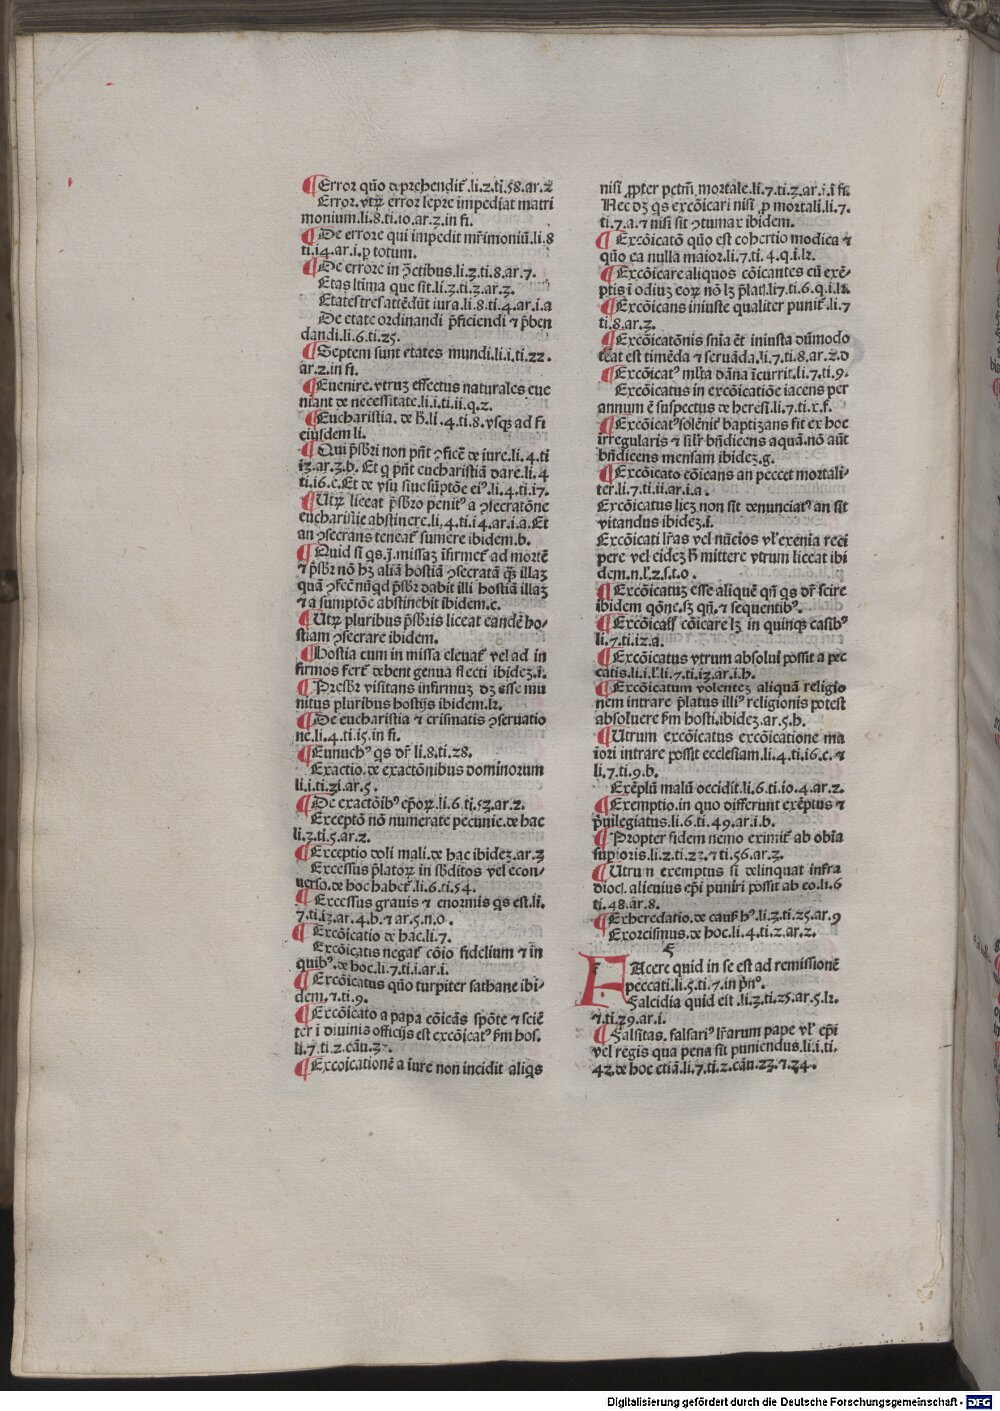 ¶Error qũo dep̱rehendit᷑.li.2.ti.58.ar.2
Error.vtꝝ error lepre impediat matri
monium.li.8.ti.10.ar.3.in fi.
¶De errore qui impedit mr̃imoniũ.li.8
ti.14.ar.i.ꝑ totum.
¶De errore in ꝯ̃ctibus.li.3.ti.8.ar.7.
Etas ltima que sit.li.3.ti.3.ar.3.
Etates tres attẽdũt iura.li.8.ti.4.ar.i.a
De etate ordinandi p̃ficiendi ⁊ p̃ben
dandi.li.6.ti.25.
¶Septem sunt etates mundi.li.i.ti.22.
ar.2.in fi.
¶Euenire.vtruꝫ effectus naturales eue
niant de necessitate.li.i.ti.ii.q.2.
¶Eucharistia. de h̃.li.4.ti.8.vsqꝫ ad fi
eiusdem li.
¶Qui p̃sbri non pñt ꝯficẽ de iure.li.4.ti
13.ar.3.b. Et q pñt eucharistiã dare.li.4
ti.16.c.Et de vsu siue sũptõe eiꝰ.li.4.ti.17.
¶Utꝝ liceat p̃sbr̃o penitꝰ a ꝯsecratõne
eucharistie abstinere.li.4.ti.14.ar.i.a.Et
an ꝯsecrans teneat᷑ sumere ibidem.b.
¶Quid si qs.ĩ.missaꝫ ĩfirmet᷑ ad mortẽ
⁊ p̃sbr nõ hꝫ aliã hostiã ꝯsecratã qꝫ illaꝫ
quã ꝯfec̃ nũqd p̃sbr dabit illi hostiã illaꝫ
⁊ a sumptõe abstinebit ibidem.c.
¶Utꝝ pluribus p̃sbris liceat eandẽ ho⸗
stiam ꝯsecrare ibidem.
¶Hostia cum in missa eleuat᷑ vel ad in
firmos fert᷑ debent genua flecti ibideꝫ.i.
¶Presbr̃ visitans infirmuꝫ dꝫ esse mu
nitus pluribus hostijs ibidem.k.
¶De eucharistia ⁊ crismatis ꝯseruatio
ne.li.4.ti.15.in fi.
¶Eunuchꝰ qs dr̃ li.8.ti.28.
Exactio.de exactõnibus dominorum
li.i.ti.31.ar.5.
¶De exactõibꝰ ep̃oꝝ.li.6.ti.53.ar.2.
Exceptõ nõ numerate pecunie.de hac
li.3.ti.5.ar.2.
¶Exceptio doli mali.de hac ibideꝫ.ar.3
Excessus p̃latoꝝ in sb̃ditos vel econ⸗
uerso.de hoc habet᷑.li.6.ti.54.
¶Excessus grauis ⁊ enormis qs est.li.
7.ti.13.ar.4.b.⁊ ar.5.n.o.
¶Excõicatio de hac.li.7.
Excõicatis negat᷑ cõio fidelium ⁊ in
quibꝰ.de hoc.li.7.ti.i.ar.i.
¶Excõicatus qũo turpiter sathane ibi⸗
dem.⁊.ti.9.
¶Excõicato a papa cõicãs spõte ⁊ sciẽ
ter i diuinis officijs est excõicatꝰ ẜm hos.
li.7.ti.2.cãu.3.
¶Excoicationẽ a iure non incidit aliqs
nisi ꝓpter pctm̃ mortale.li.7.ti.3.ar.i.ĩ fi.
Nec dꝫ qs excõicari nisi ꝓ mortali.li.7.
ti.7.a.⁊ nisi sit ꝯtumax ibidem.
¶Excõicatõ qũo est cohertio modica ⁊
qũo ea nulla maior.li.7.ti.4.q.i.k.
¶Excõicare aliquos cõicantes cũ exẽ⸗
ptis ĩ odiuꝫ eoꝝ nõ lꝫ p̃lati.li.7.ti.6.q.i.k.
¶Excõicans iniuste qualiter punit᷑.li.7
ti.8.ar.3.
¶Excõicatõnis sñia ẽt iniusta dũmodo
teat est timẽda ⁊ seruãda.li.7.ti.8.ar.2.d
¶Excõicatꝰ mlta dãna ĩcurrit.li.7.ti.9.
Excõicatus in excõicatiõe iacens per
annum ẽ suspectus de heresi.li.7.ti.x.f.
¶Excõicatꝰ solẽnit᷑ baptizans fit ex hoc
irregularis ⁊ silr̃ bñdicens aquã.nõ aũt
bñdicens mensam ibideꝫ.g.
¶Excõicato cõicans an peccet mortali⸗
ter.li.7.ti.ii.ar.i.a.
Excõicatus licꝫ non sit denunciatꝰ an sit
vitandus ibideꝫ.i.
Excõicati lr̃as vel nũcios vl̃ exenia reci
pere vel eideꝫ h̃ mittere vtrum liceat ibi
dem.n.l.̃2.s.t.o.
¶Excõicatuꝫ esse aliquẽ qñ qs dr̃ scire
ibidem qõne.sꝫ qñ.⁊ sequentibꝰ.
¶Excõicat᷑ cõicare lꝫ in quinqꝫ casibꝰ
li.7.ti.12.a.
¶Excõicatus vtrum absolui possit a pec
catis.li.i.l̃.li.7.ti.13.ar.i.h.
¶Excõicatum volenteꝫ aliquã religio
nem intrare p̃latus illiꝰ religionis potest
absoluere ẜm hosti.ibideꝫ.ar.5.h.
¶Utrum excõicatus excõicatione ma
iori intrare possit ecclesiam.li.4.ti.16.c.⁊
li.7.ti.9.b.
Exẽplũ malũ occidit.li.6.ti.10.4.ar.2.
¶Exemptio.in quo differunt exẽptus ⁊
p̃uilegiatus.li.6.ti.49.ar.i.b.
¶Propter fidem nemo eximit᷑ ab obĩa
supioris.li.2.ti.23.⁊ ti.56.ar.3.
¶Utrum exemptus si delinquat infra
dioc̃.alicuius ep̃i puniri possit ab eo.li.6
ti.48.ar.8.
¶Exheredatio.de cauß hꝰ.li.3.ti.25.ar.9
Exorcismus.de hoc.li.4.ti.2.ar.2.
FAcere quid in se est ad remissionẽ
peccati.li.5.ti.7.in p̃nꝰ.
Falcidia quid est.li.3.ti.25.ar.5.k.
⁊.ti.39.ar.i.
¶Falsitas.falsariꝰ lr̃arum pape vl̃ ep̃i
vel regis qua pena sit puniendus.li.i.ti.
42.de hoc etiã.li.7.ti.2.cãu.23.⁊.24.
Digitalisierung gefördert durch die Deutsche Forschungsgemeinschaft - DFG